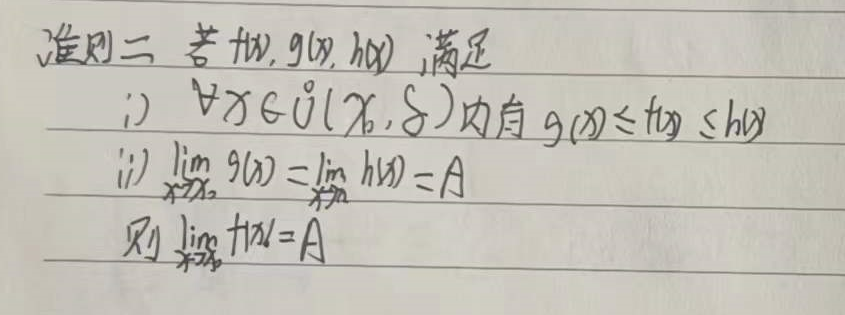 准则二 若 f(x), g(x), h(x) 满足
i) ∀x∈Ů(x₀, δ) 内有 g(x) ≤ f(x) ≤ h(x)
ii) lim x→x₀ g(x) = lim x→x₀ h(x) = A
则 lim x→x₀ f(x) = A